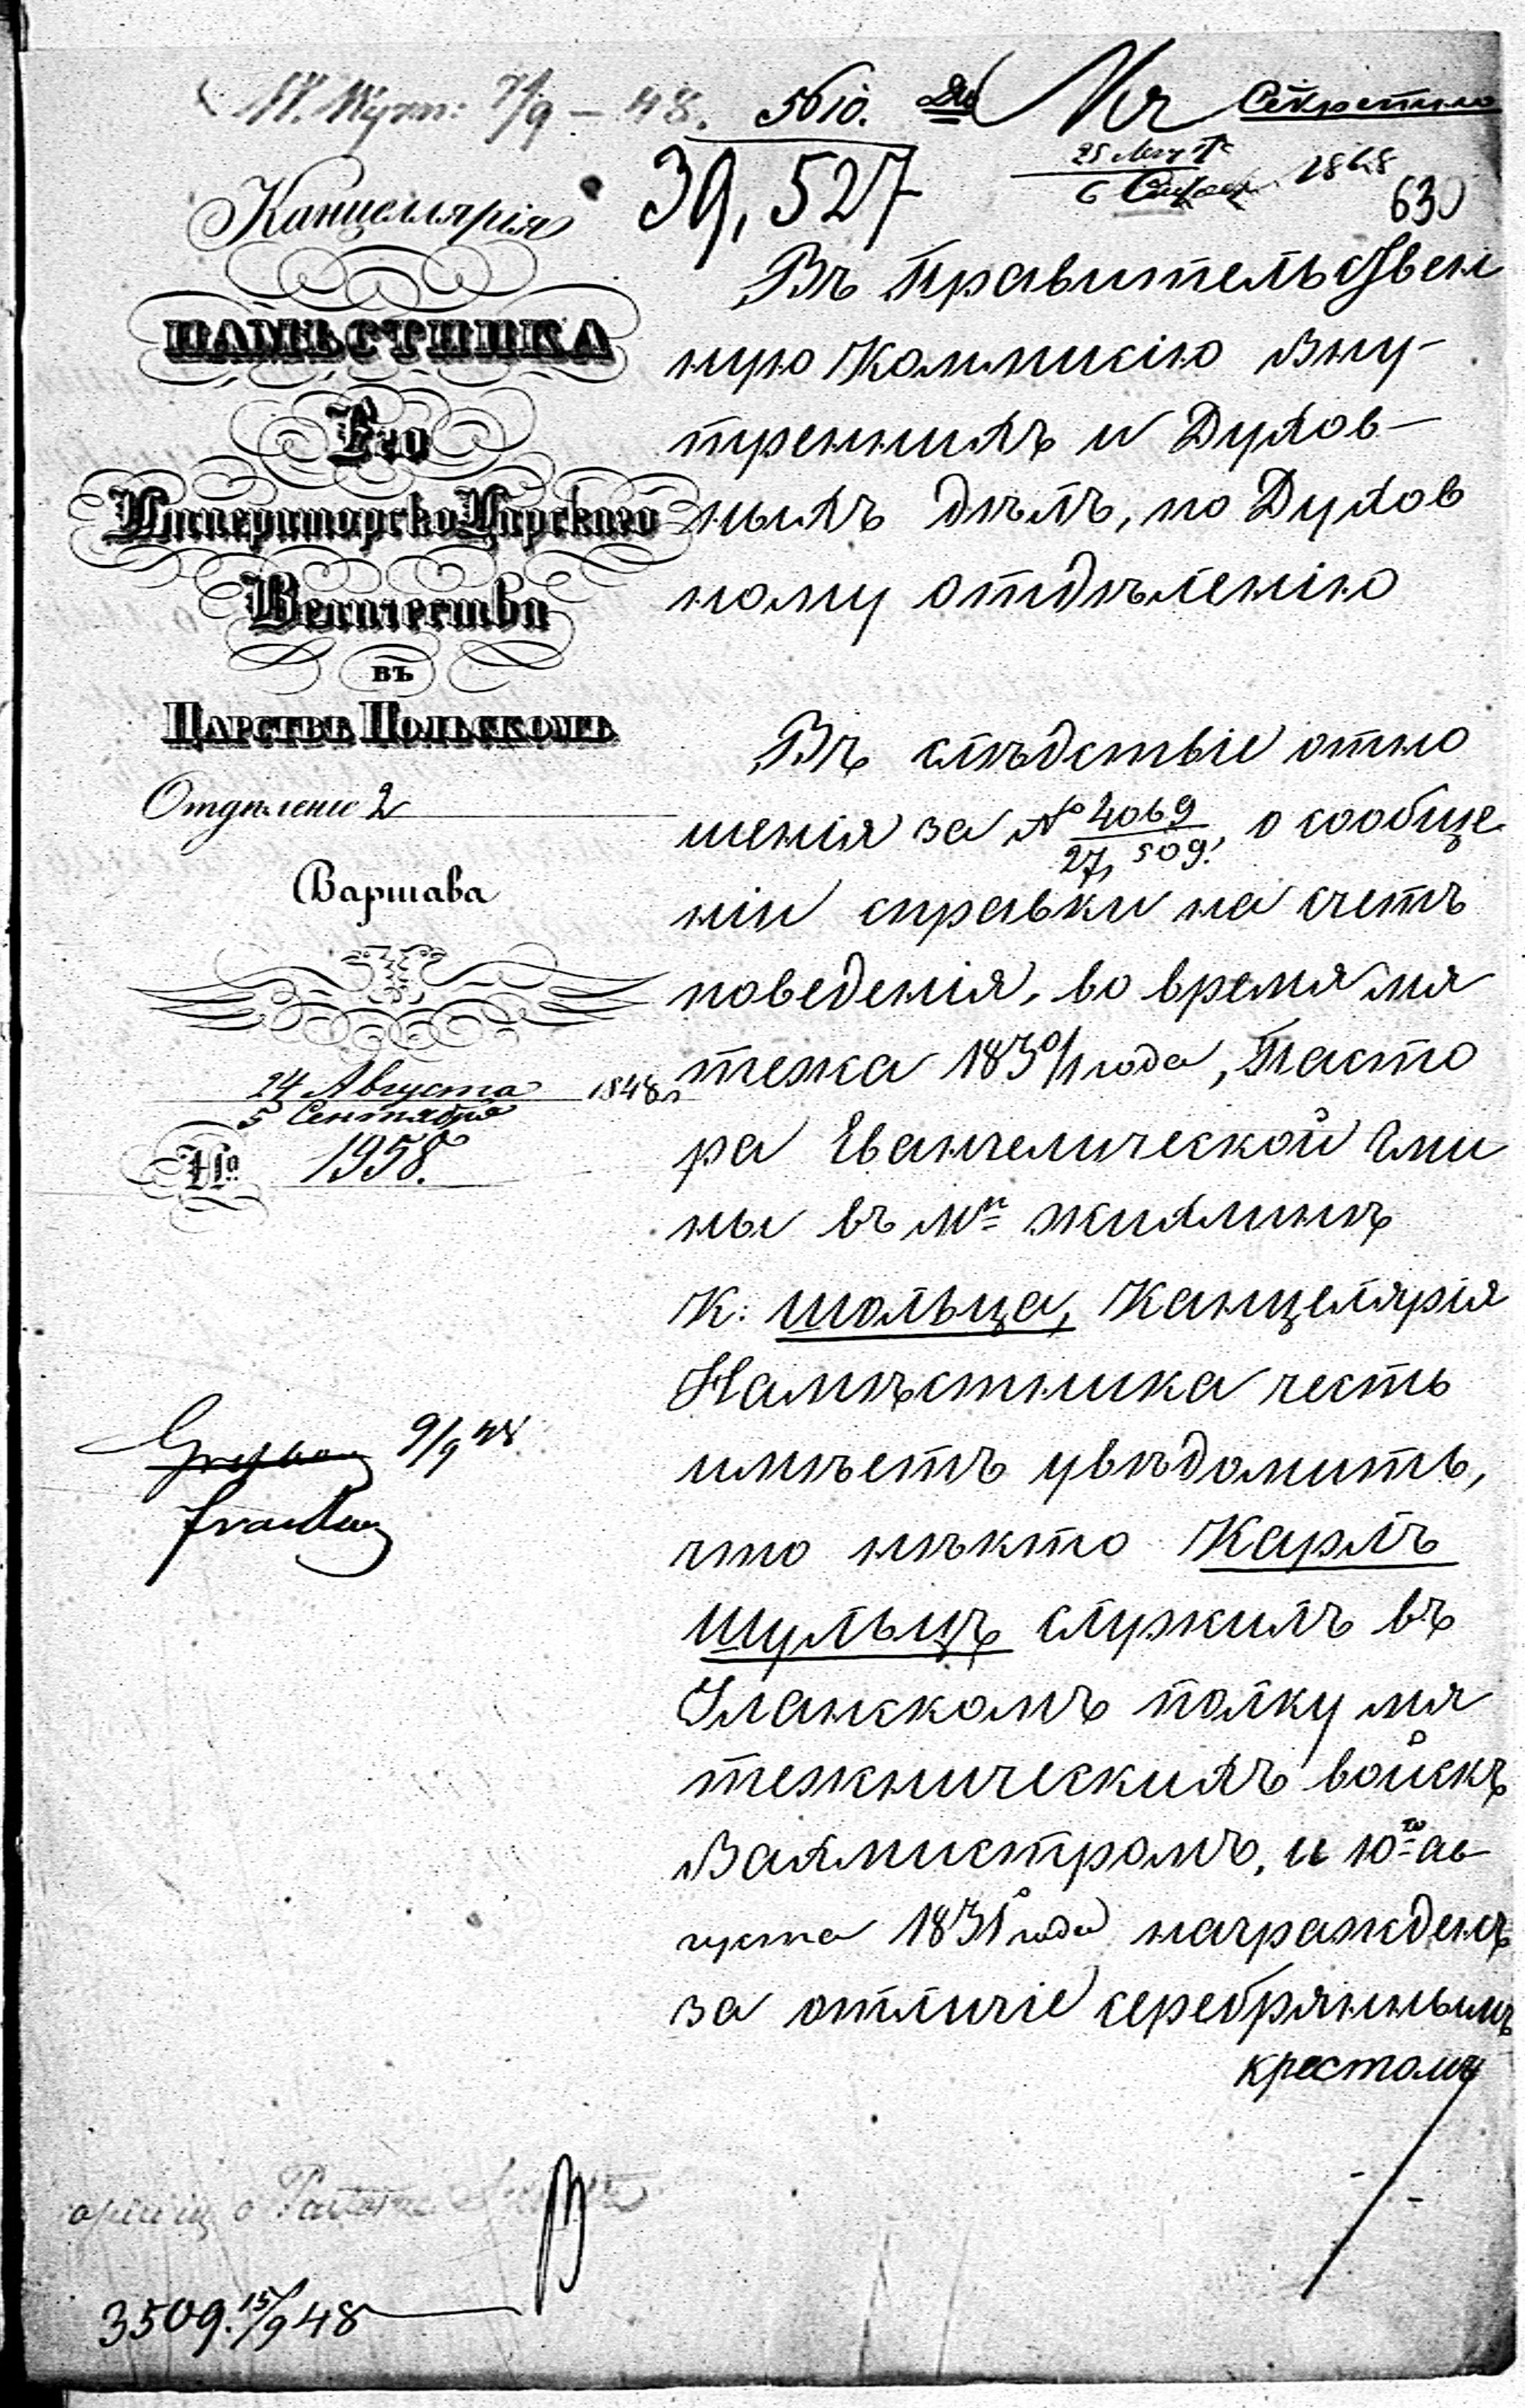 7/9 – 48. 5610.
Секретно
39,527
25 Авгус
6 1848
630
Канцеллярія
НАМѢСТНИКА
Его
Императорско Царскаго
Величества
въ
Царствѣ Польскомъ
Отдѣленіе 2
Варшава
24 Августа 1848 г
5 Сентября
№ 1958.
Въ Правительствен
ную Коммисію Вну-
треннихъ и Духов-
ныхъ дѣлъ, по Духов
ному отдѣленію
Въ слѣдствіе отно
шенія за № 4069/27,509, о сообще
ніи справки на счетъ
поведенія, во время мя
тежа 1830/1 года, Пасто
ра Евангелической Гми
ны въ мѣ Жихлинѣ
К: Шольца, Канцелярія
Намѣстника честь
имѣетъ увѣдомить,
что нѣкто Карлъ
Шульцъ служилъ въ
Уланскомъ полку мя
тежническихъ войскъ
Вахмистромъ, и 10го ав
густа 1831 года награжденъ
за отличіе серебряннымъ
крестомъ
9/9 48
3509. 15/9 48